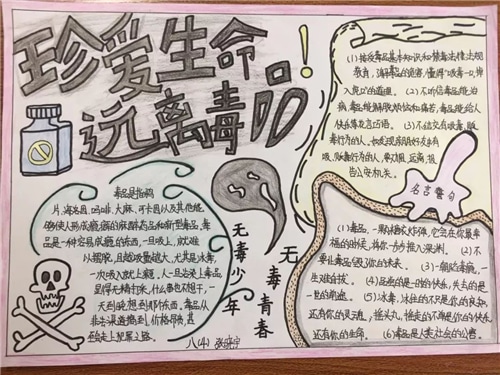 珍爱生命
远离毒品!
(1)接受毒品基本知识和禁毒法律法规
教育,了解毒品的危害,懂得"吸毒一口,掉
入虎口"的道理。(2)不听信毒品能治
病,毒品能解脱烦恼和痛苦,毒品能给人
快乐等花言巧语。(3)不结交有吸毒、贩
毒行为的人。如发现亲朋好友有
吸、贩毒行为的人,要劝阻,远离,报
告公安机关。
毒品是指鸦
片、海洛因、吗啡、大麻、可卡因以及其他能
够使人形成瘾癖的麻醉药品和新型毒品,毒
品是一种容易成瘾的东西,一旦吸上,就难
以摆脱,且越吸量越大,尤其是冰毒,
一次吸入就上瘾。人一旦染上毒品
显得无精打采,什么事也不想干,一
天到晚想到那东西,毒品从
非法渠道搞到,价格昂贵,甚
至会走上犯罪之路。
无毒少年
无毒青春
八(4) 张晓宁
名言警句
(1)毒品,一颗糖衣炸弹,它会在你最幸
福的时候,将你一方方推入深渊。(2)不
要让毒品毁了你的未来。(3)一朝陷毒瘾,一
生难自拔。(4)
(5)冰毒,冰住的不只是你的良知,
还有你的灵魂,摇头丸,摇走的不单是你的快乐,
还有你的生命。(6)毒品是人类社会的公害。